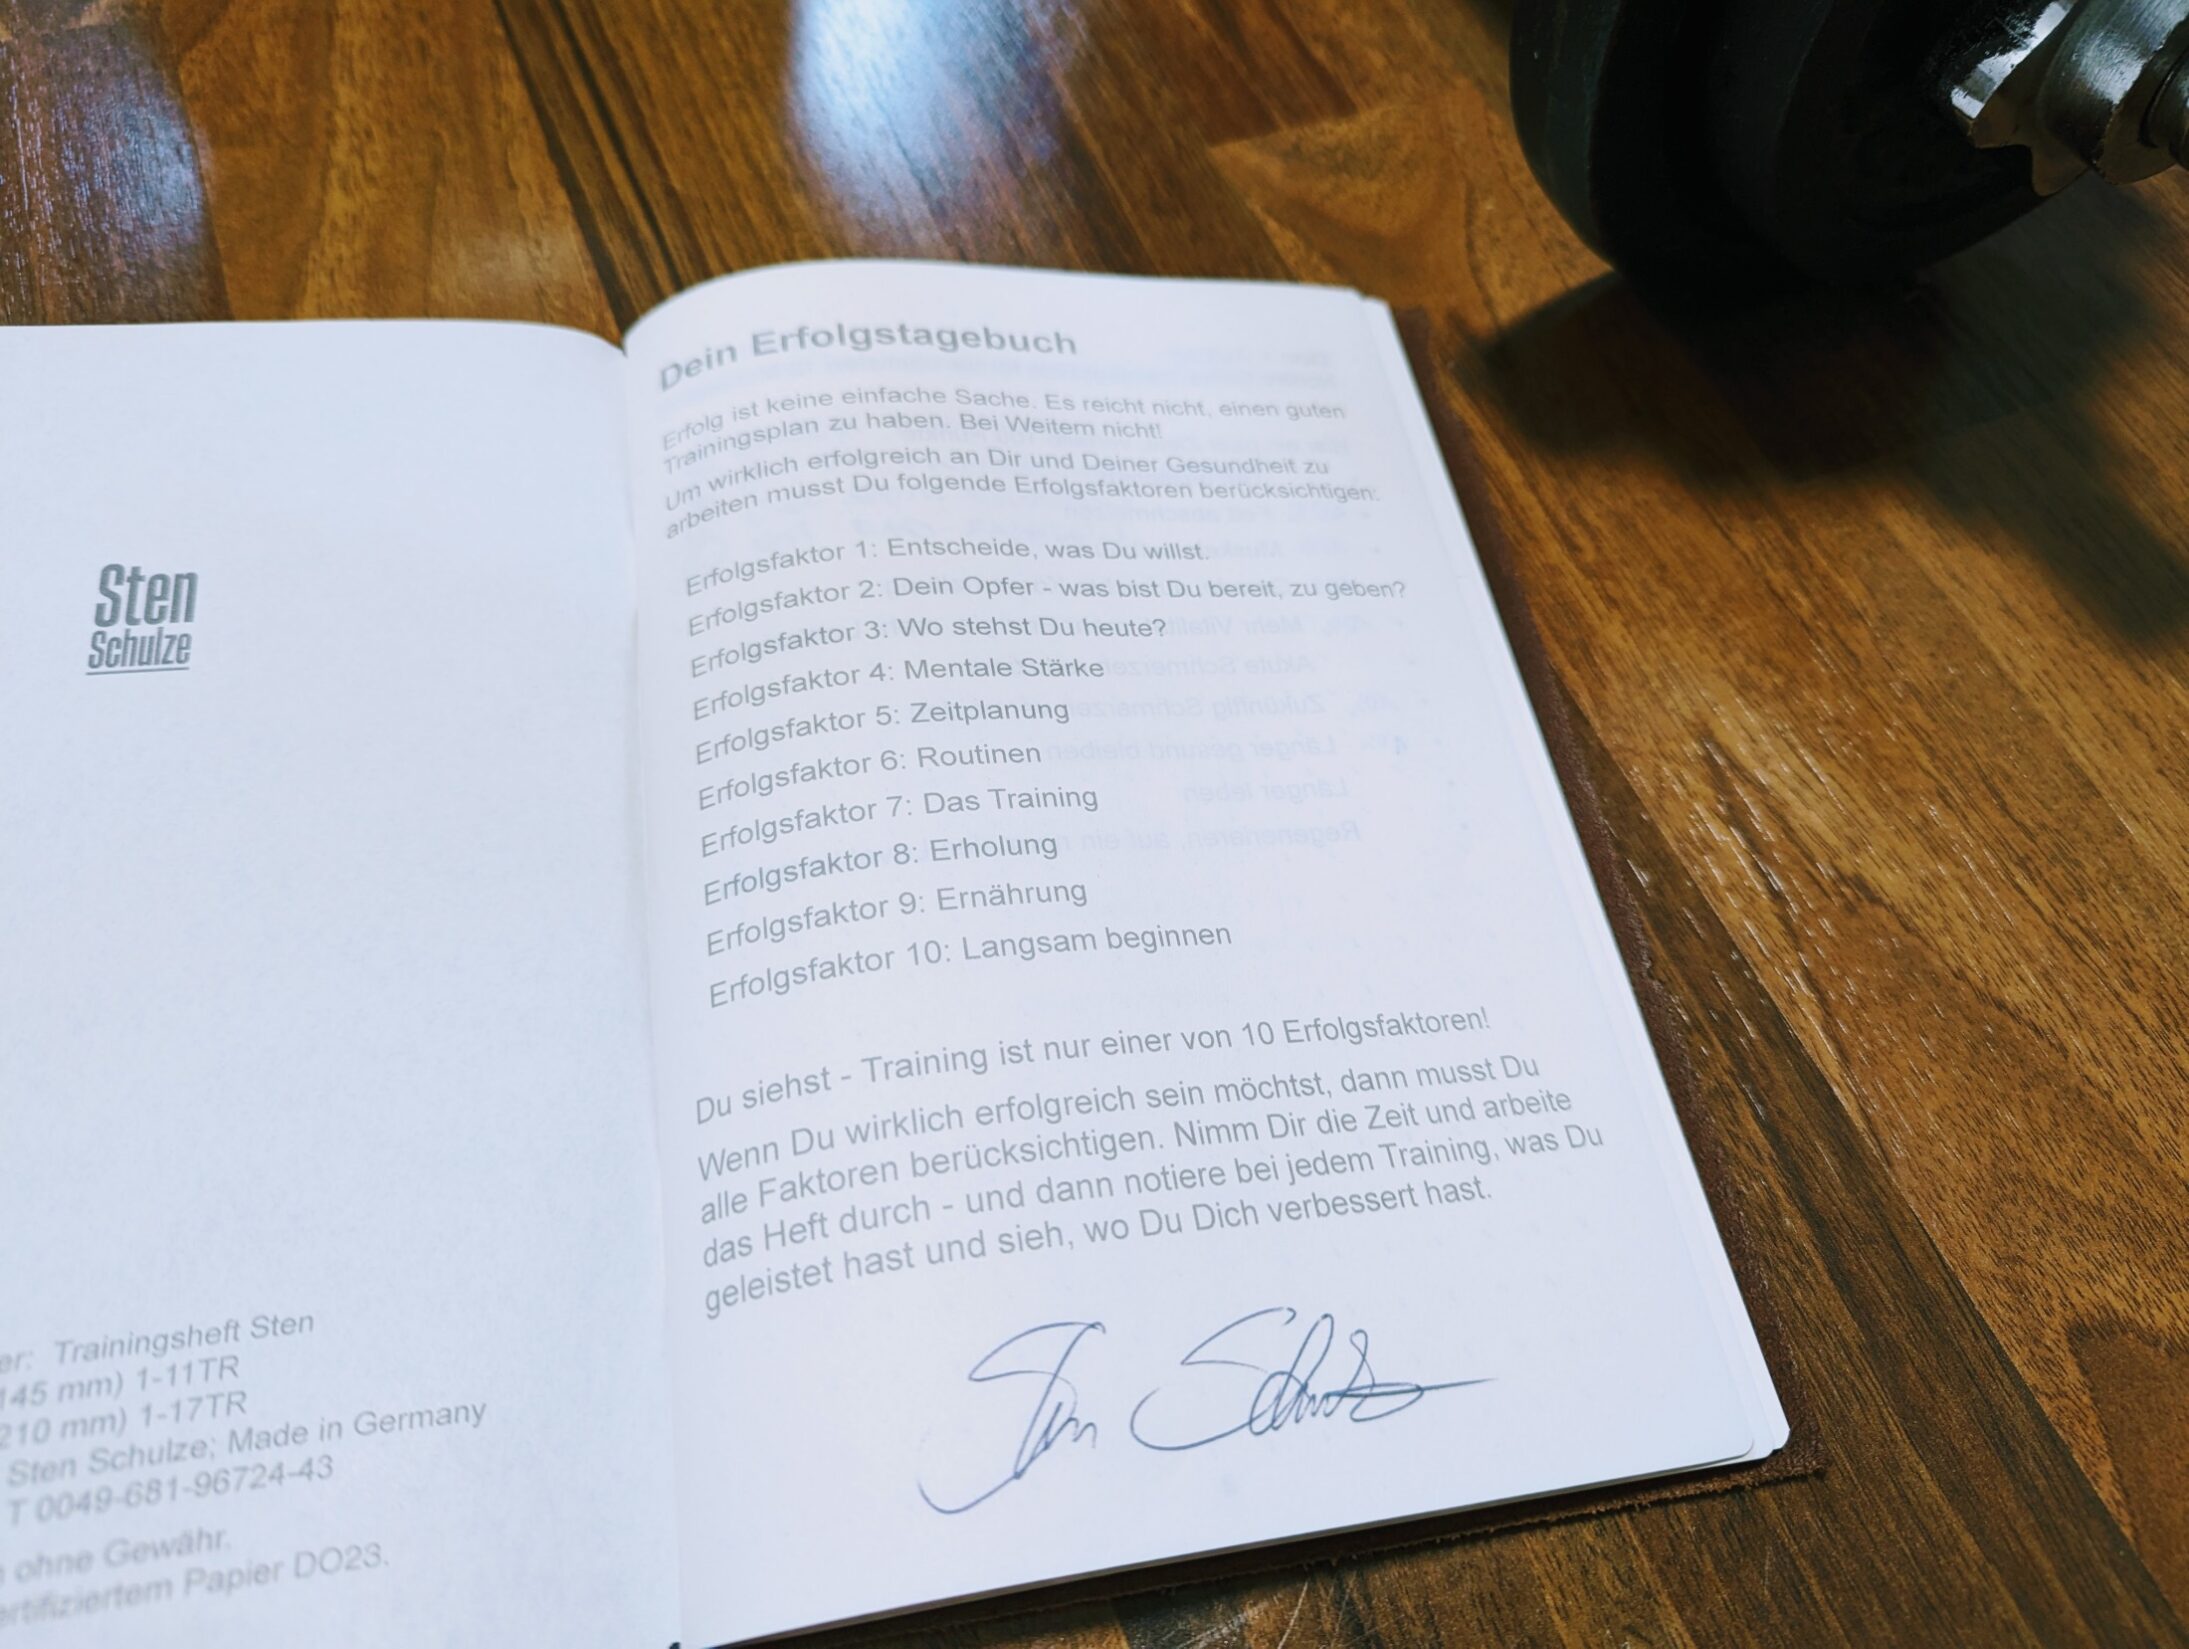 Sten
Schulze
er: Trainingsheft Sten
145 mm) 1-11TR
210 mm) 1-17TR
Sten Schulze; Made in Germany
T 0049-681-96724-43
ohne Gewähr.
ertifiziertem Papier DO23.
Dein Erfolgstagebuch
Erfolg ist keine einfache Sache. Es reicht nicht, einen guten
Trainingsplan zu haben. Bei Weitem nicht!
Um wirklich erfolgreich an Dir und Deiner Gesundheit zu
arbeiten musst Du folgende Erfolgsfaktoren berücksichtigen:
Erfolgsfaktor 1: Entscheide, was Du willst.
Erfolgsfaktor 2: Dein Opfer - was bist Du bereit, zu geben?
Erfolgsfaktor 3: Wo stehst Du heute?
Erfolgsfaktor 4: Mentale Stärke
Erfolgsfaktor 5: Zeitplanung
Erfolgsfaktor 6: Routinen
Erfolgsfaktor 7: Das Training
Erfolgsfaktor 8: Erholung
Erfolgsfaktor 9: Ernährung
Erfolgsfaktor 10: Langsam beginnen
Du siehst - Training ist nur einer von 10 Erfolgsfaktoren!
Wenn Du wirklich erfolgreich sein möchtst, dann musst Du
alle Faktoren berücksichtigen. Nimm Dir die Zeit und arbeite
das Heft durch - und dann notiere bei jedem Training, was Du
geleistet hast und sieh, wo Du Dich verbessert hast.
Sten Schulze